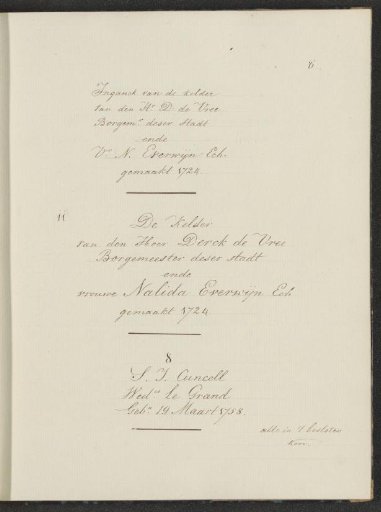 6
Inganck van de kelder
van den Hr D. de Vree
Borgemr deser stadt
ende
Vr N. Everwijn Ech.
gemaakt 1724
11
De Kelder
van den Heer Derck de Vree
Borgemeester deser stadt
ende
vrouwe Nalida Everwijn Ech
gemaakt 1724
8
S. J. Cuncell
Wedue Le Grand
Gebn 19 Maart 1758.
alle in 't besloten
Koor.